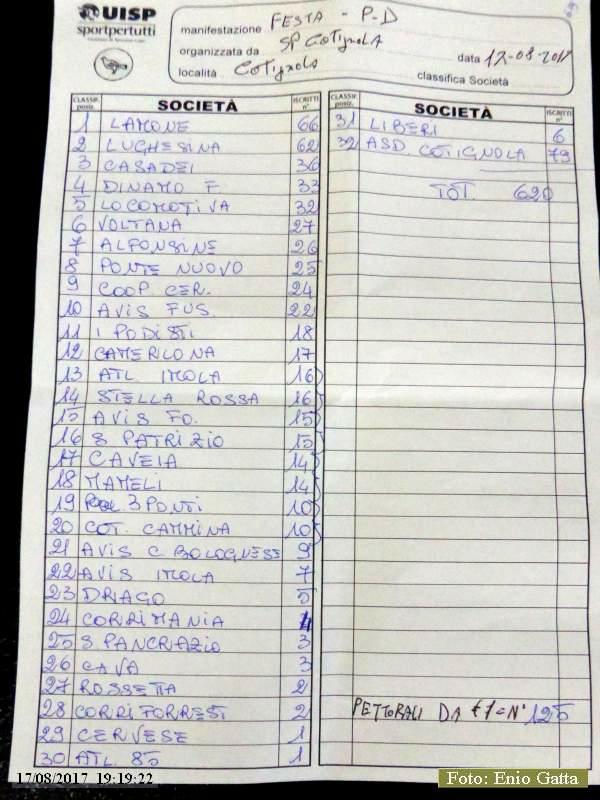 UISP
sportpertutti
manifestazione FESTA - P-D
organizzata da SP COTIGNOLA
data 17-08-2017
località COTIGNOLA
classifica Società
CLASSIF. posiz. SOCIETÀ ISCRITTI n°
1 LAMONE 66
2 LUGHESINA 62
3 CASADEI 36
4 DINAMO F 33
5 LOCOMOTIVA 32
6 VOLTANA 27
7 ALFONSINE 26
8 PONTE NUOVO 25
9 COOP. CER. 24
10 AVIS FUS. 22
11 I PODISTI 18
12 CAMERLONA 17
13 ATL IMOLA 16
14 STELLA ROSSA 16
15 AVIS FO. 15
16 S PATRIZIO 15
17 CAVEIA 14
18 MAMELI 14
19 3 PONTI 10
20 COT. CAMMINA 10
21 AVIS C. BOLOGNESE 9
22 AVIS IMOLA 7
23 DRAGO 5
24 CORRIMANIA 4
25 S PANCRAZIO 3
26 CAVA 3
27 ROSSETTA 2
28 CORRIFORREST 2
29 CERVESE 1
30 ATL. 85 1
CLASSIF. posiz. SOCIETÀ ISCRITTI n°
31 LIBERI 6
32 ASD. COTIGNOLA 79
TOT. 620
PETTORALI DA €1= N° 125
17/08/2017 19:19:22
Foto: Enio Gatta